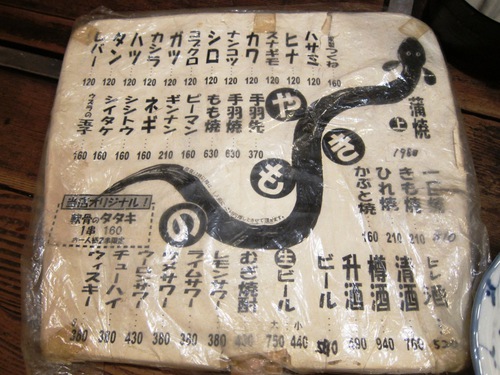 やきもの
蒲焼 上 1980
ハサミ 120
ヒナ 120
スナギモ 120
カワ 120
ナンコツ 120
シロ 120
コブクロ 120
ガツ 120
カシラ 120
ハツ 120
タン 120
レバー 120
手羽先 370
手羽焼 630
もも焼 630
ピーマン 160
ギンナン 210
ネギ 160
シシトウ 160
シイタケ 160
ウズラの玉子 160
きも焼 210
ひれ焼 210
かぶと焼 160
当店オリジナル!
軟骨のタタキ
1串 160
お一人様2本限定
清酒 760
樽酒 940
升酒 690
ビール
生ビール 大 750 小 440
むぎ焼酎
レモンサワー 380
ライムサワー 380
ウメサワー 380
チューハイ 380
ウイスキー 380